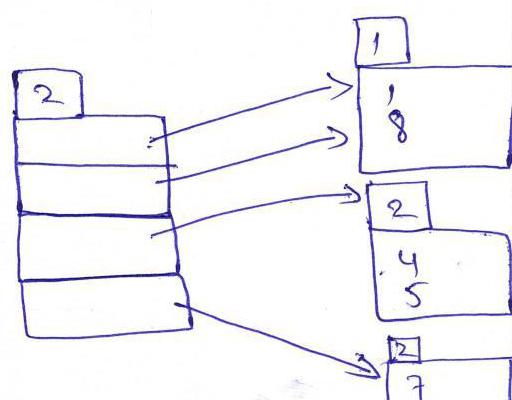 2
1
1
8
2
4
5
2
7